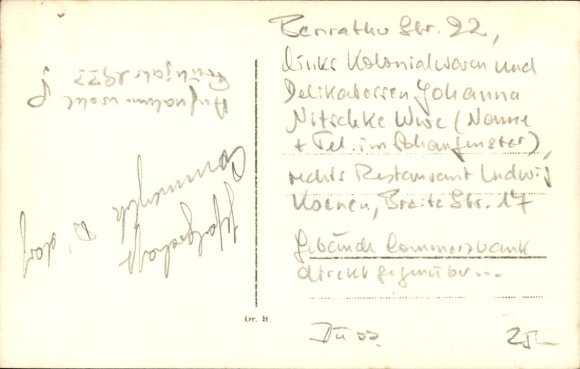 Benrather Str. 22,
links Kolonialwaren und
Delikatessen Johanna
Nitschke Wwe (Name
+ Tel. im Schaufenster),
rechts Restaurant Ludwig
Koenen, Breite Str. 17
Gebäude Commerzbank
direkt gegenüber...
Düss
25,-
Dr. H.
Aufnahme wohl
Frühjahr 1933
?
D'dorf